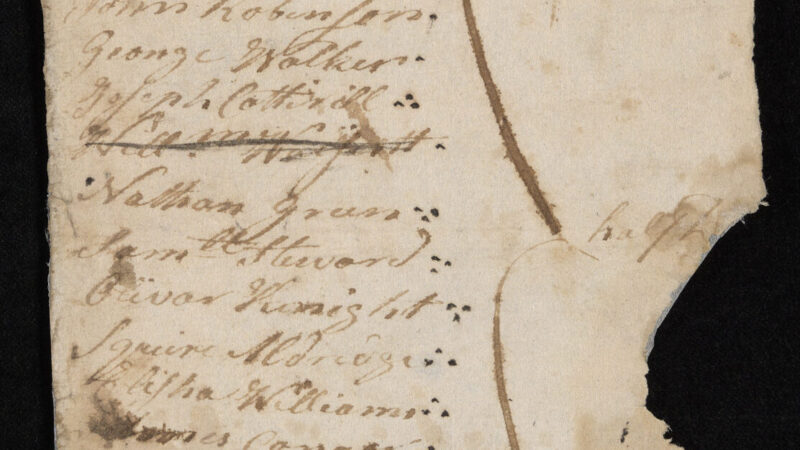 John Robinson
George Walker
Joseph Cottrill
Will
Nathan Grien
Samll Steward
half
Olivar Knight
Squire Aldridge
Elisha Williams
James